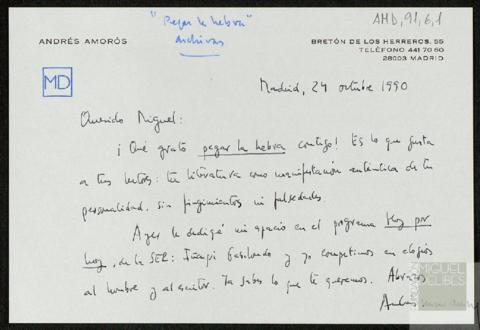 "Pegar la hebra"
archivar
AMD, 91, 6, 1
ANDRÉS AMORÓS
BRETÓN DE LOS HERREROS, 55
TELÉFONO 441 70 60
28003 MADRID
MD
Madrid, 24 octubre 1990
Querido Miguel:
¡Qué grato pegar la hebra contigo! Es lo que gusta
a tus lectores: tu literatura como manifestación auténtica de tu
personalidad, sin fingimientos ni falsedades.
Ayer le dediqué mi espacio en el programa Hoy por
hoy, de la SER: Iñaki Gabilondo y yo competimos en elogios
al hombre y al escritor. Ya sabes lo que te queremos. Abrazos
Andrés
MIGUEL
DELIBES